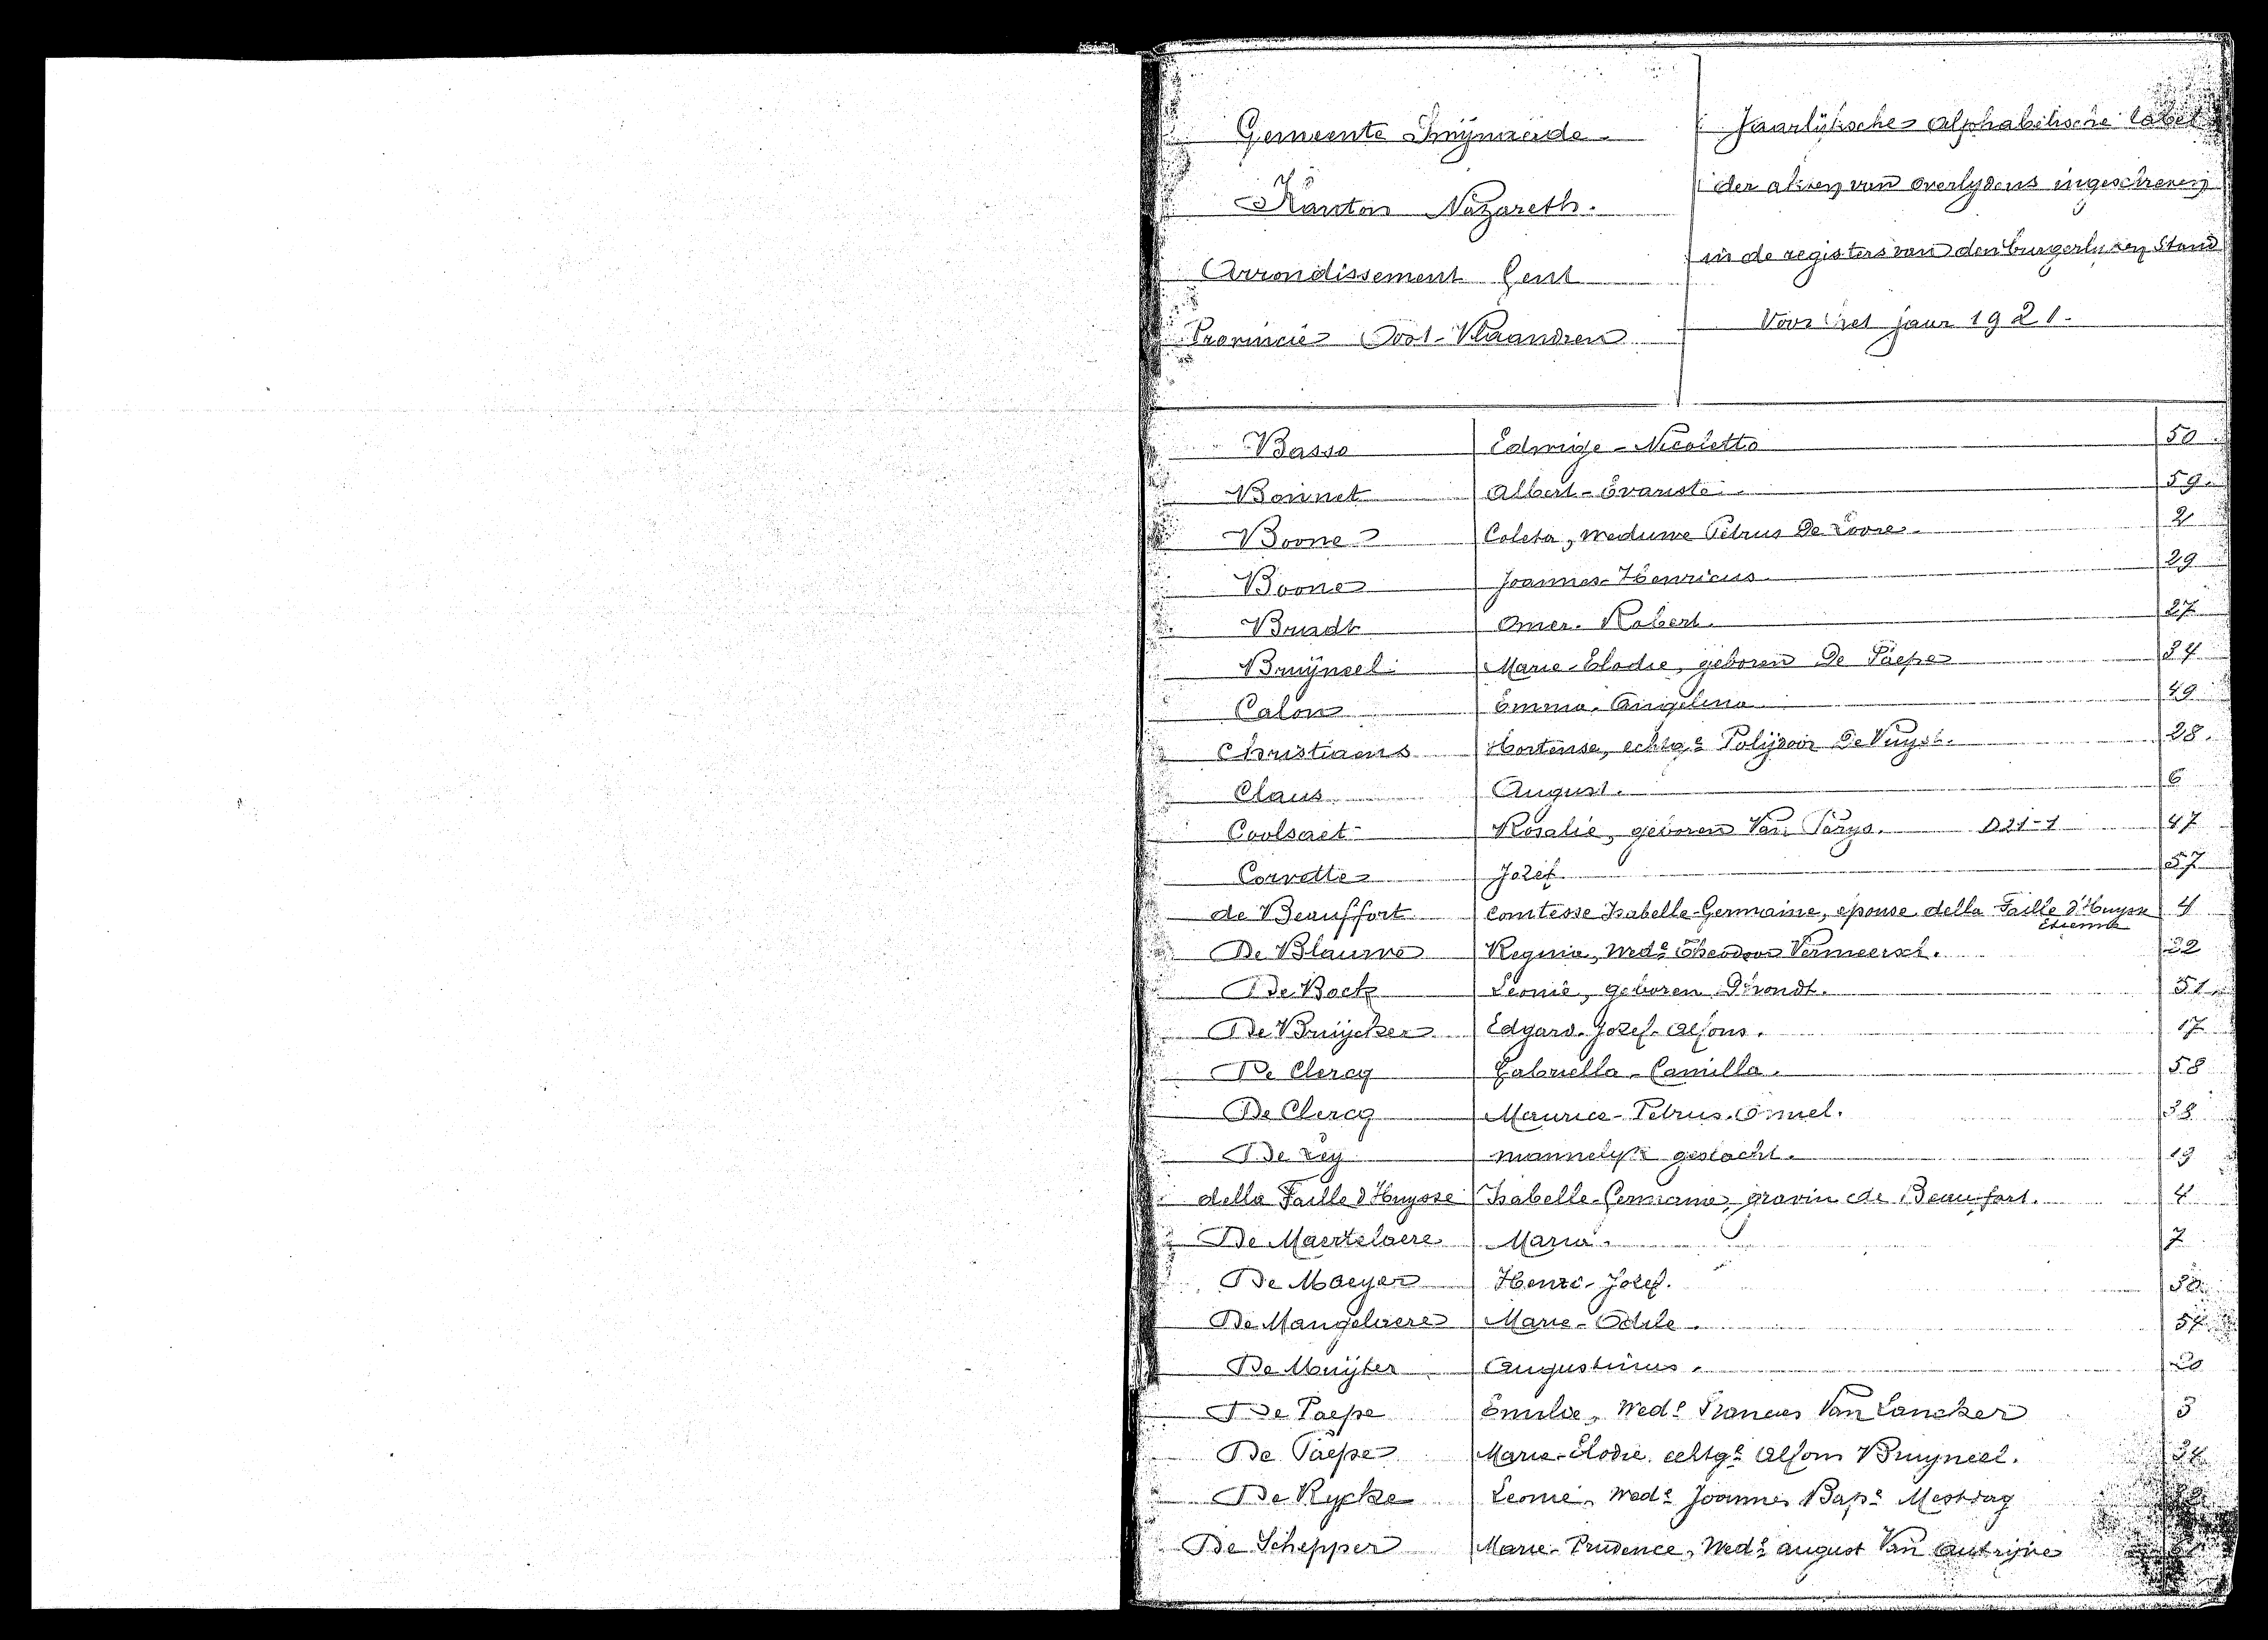 Gemeente Swijnaarde.
Kanton Nazareth.
Arrondissement Gent
Provincie Oost-Vlaandren
Jaarlijksche alphabetische tabel
der akten van overlydens ingeschreven
in de registers van den burgerlyken Stand
Voor het jaar 1921.
Basso Edwige-Nicoletta 50
Bonnet Albert-Evariste. 59.
Boone Coleta, weduwe Petrus De Loore. 2
Boone Joannes-Henricus 29
Bradt Omer-Robert. 27
Bruijneel Marie-Elodie, geboren De Paepe 34
Calon Emma-Angelina 49
Christiaens Hortense, echtge Polijdoor De Vuyst. 28.
Claus August. 6
Coolsaet Rosalie, geboren Van Parys. D21-1 47
Corvette Jozef 57
de Beauffort Comtesse Isabelle-Germaine, épouse della Faille d'Huysse 4
Etienne
De Blauwe Regina, Wede Theodoor Vermeersch. 22
De Bock Leonie, geboren D'hondt. 51.
De Bruijcker Edgard-Jozef-Alfons. 17
De Clercq Gabriella-Camilla. 58
De Clercq Maurice-Petrus-Omuel. 38
De Ley mannelyk geslacht. 19
della Faille d'Huysse Isabelle-Germaine, gravin de Beaufort. 4
De Maertelaere Maria. 7
De Maeyer Henri-Jozef. 30
De Mangelaere Marie-Odile. 54
De Muijter Augustinus. 20
De Paepe Emilie, Wede Francies Van Lancker 3
De Paepe Marie-Elodie echtge Alfons Bruyneel. 34
De Rycke Leonie, Wede Joannes Bapte Mestdag
De Schepper Marie-Prudence, Wede august Van Autrijve